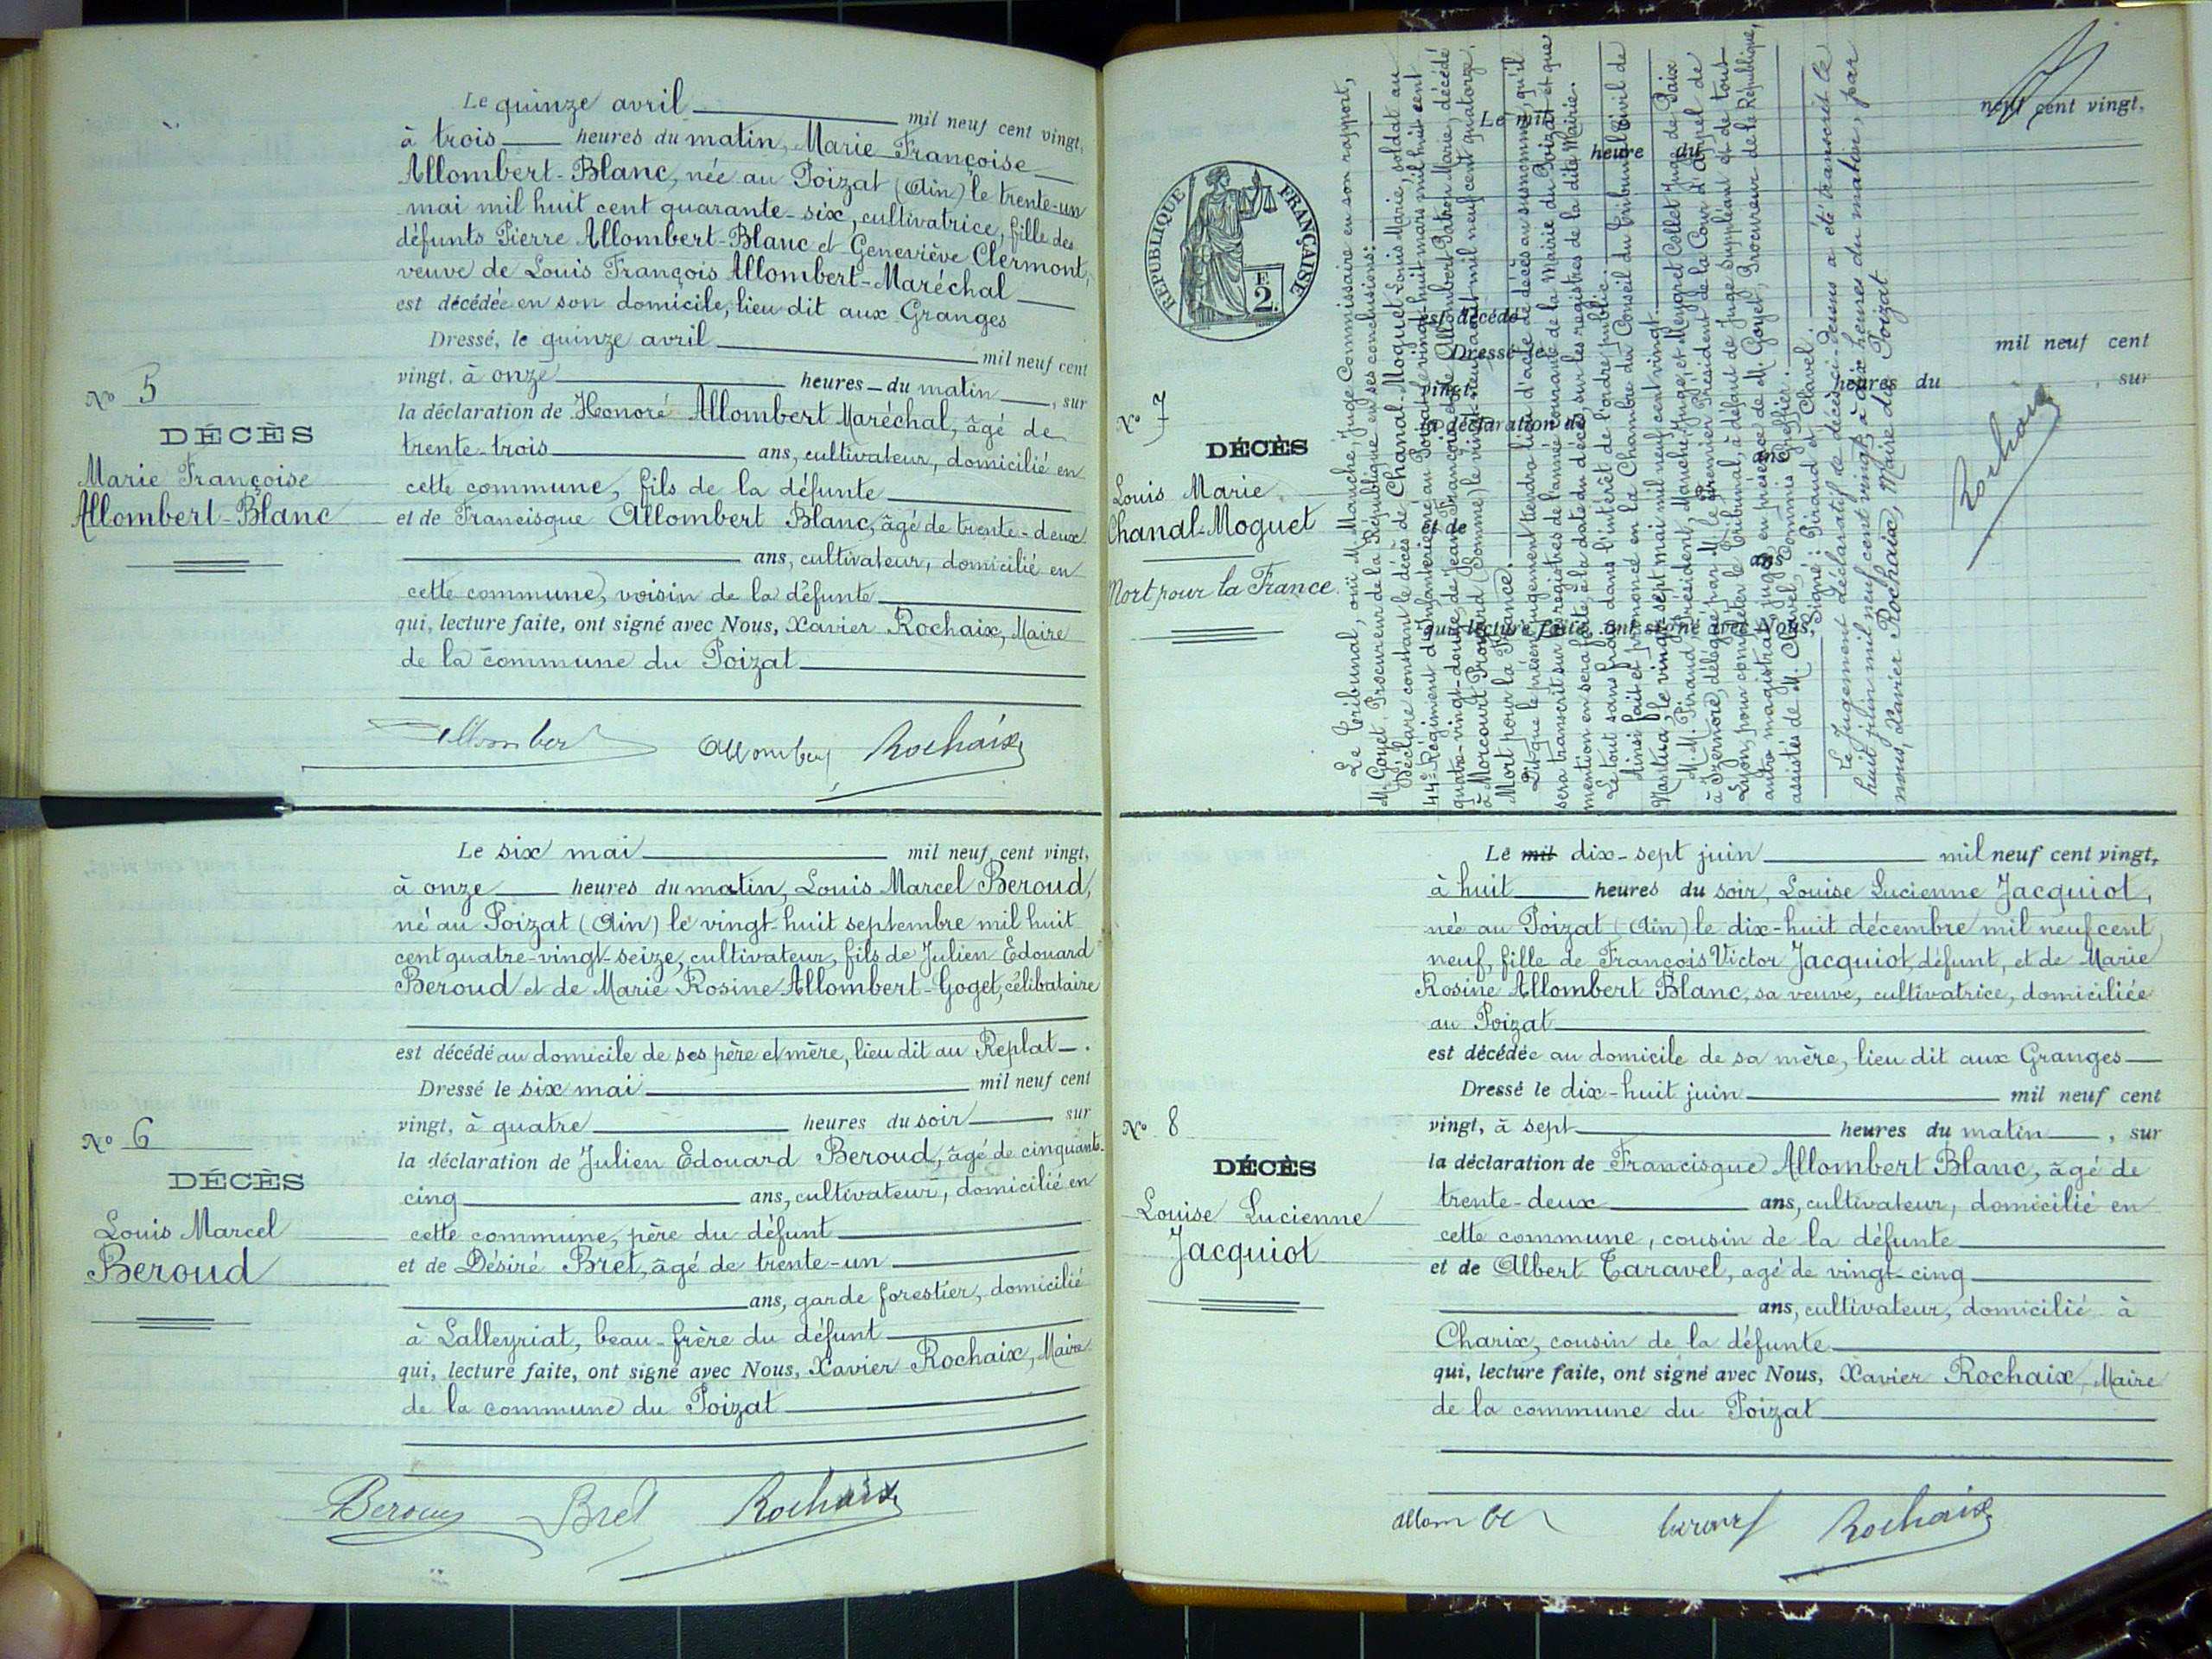 Le quinze avril mil neuf cent vingt,
à trois heures du matin, Marie Françoise
Allombert-Blanc, née au Poizat (Ain) le trente-un
mai mil huit cent quarante-six, cultivatrice, fille des
défunts Pierre Allombert-Blanc et Geneviève Clermont,
veuve de Louis François Allombert-Maréchal
est décédée en son domicile, lieu dit aux Granges
Dressé, le quinze avril mil neuf cent
vingt, à onze heures du matin, sur
la déclaration de Honoré Allombert Maréchal, âgé de
trente-trois ans, cultivateur, domicilié en
cette commune, fils de la défunte
et de Francisque Allombert Blanc, âgé de trente-deux
ans, cultivateur, domicilié en
cette commune, voisin de la défunte
qui, lecture faite, ont signé avec Nous, Xavier Rochaix, Maire
de la commune du Poizat
Nº 5
DÉCÈS
Marie Françoise
Allombert-Blanc
Allombert Rochaix
Le six mai mil neuf cent vingt,
à onze heures du matin, Louis Marcel Beroud,
né au Poizat (Ain) le vingt-huit septembre mil huit
cent quatre-vingt-seize, cultivateur, fils de Julien Edouard
Beroud et de Marie Rosine Allombert-Goget, célibataire
est décédé au domicile de ses père et mère, lieu dit au Replat.
Dressé le six mai mil neuf cent
vingt, à quatre heures du soir, sur
la déclaration de Julien Edouard Beroud, âgé de cinquante-
cinq ans, cultivateur, domicilié en
cette commune, père du défunt
et de Désiré Bret, âgé de trente-un
ans, garde forestier, domicilié
à Lalleyriat, beau-frère du défunt
qui, lecture faite, ont signé avec Nous, Xavier Rochaix, Maire
de la commune du Poizat
Nº 6
DÉCÈS
Louis Marcel
Beroud
Beroud Bret Rochaix
RÉPUBLIQUE FRANÇAISE
2
Nº 7
DÉCÈS
Louis Marie
Chanal-Moguet
Mort pour la France
Le mil neuf cent vingt,
heure du
est décédé
Dressé le mil neuf cent
vingt, heures du , sur
la déclaration de
ans
et de
ans
qui, lecture faite, ont signé avec Nous
Le Tribunal, ouï M. Manche, Juge Commissaire en son rapport,
M. Goyet, Procureur de la République en ses conclusions:
Déclare constant le décès de Chanal-Moguet Louis Marie, soldat au
44e Régiment d'Infanterie, né au Poizat le vingt-huit mars mil huit cent
quatre-vingt-douze, de Jean François et de Allombert Patron Marie, décédé
à Morcourt Proyard (Somme) le vingt-neuf août mil neuf cent quatorze.
Mort pour la France.
Dit que le présent jugement tiendra lieu d'acte de décès au susnommé, qu'il
sera transcrit sur les registres de l'année courante de la Mairie du Poizat et que
mention en sera faite à la date du décès, sur les registres de la dite Mairie.
Le tout sans frais dans l'intérêt de l'ordre public.
Ainsi fait et prononcé en la Chambre du Conseil du Tribunal Civil de
Nantua, le vingt-sept mai mil neuf cent vingt.
M.M. Piraud, Président, Manche, Juge, et Mengret Collet, Juge de Paix
à Izernore, délégué par M. le Premier Président de la Cour d'Appel de
Lyon, pour compléter le Tribunal, à défaut de Juge Suppléant et de tout
autre magistrat, juges, en présence de M. Goyet, Procureur de la République,
assistés de M. Clavel, Commis Greffier.
Signé: Piraud et Clavel.
Le Jugement déclaratif de décès ci-dessus a été transcrit le
huit juin mil neuf cent vingt, à dix heures du matin, par
nous, Xavier Rochaix, Maire du Poizat
Rochaix
Le mil dix-sept juin mil neuf cent vingt,
à huit heures du soir, Louise Lucienne Jacquiot,
née au Poizat (Ain) le dix-huit décembre mil neuf cent
neuf, fille de François Victor Jacquiot, défunt, et de Marie
Rosine Allombert Blanc, sa veuve, cultivatrice, domiciliée
au Poizat
est décédée au domicile de sa mère, lieu dit aux Granges
Dressé le dix-huit juin mil neuf cent
vingt, à sept heures du matin, sur
la déclaration de Francisque Allombert Blanc, âgé de
trente-deux ans, cultivateur, domicilié en
cette commune, cousin de la défunte
et de Albert Taravel, agé de vingt-cinq
ans, cultivateur, domicilié à
Charix, cousin de la défunte
qui, lecture faite, ont signé avec Nous, Xavier Rochaix, Maire
de la commune du Poizat
Nº 8
DÉCÈS
Louise Lucienne
Jacquiot
Rochaix